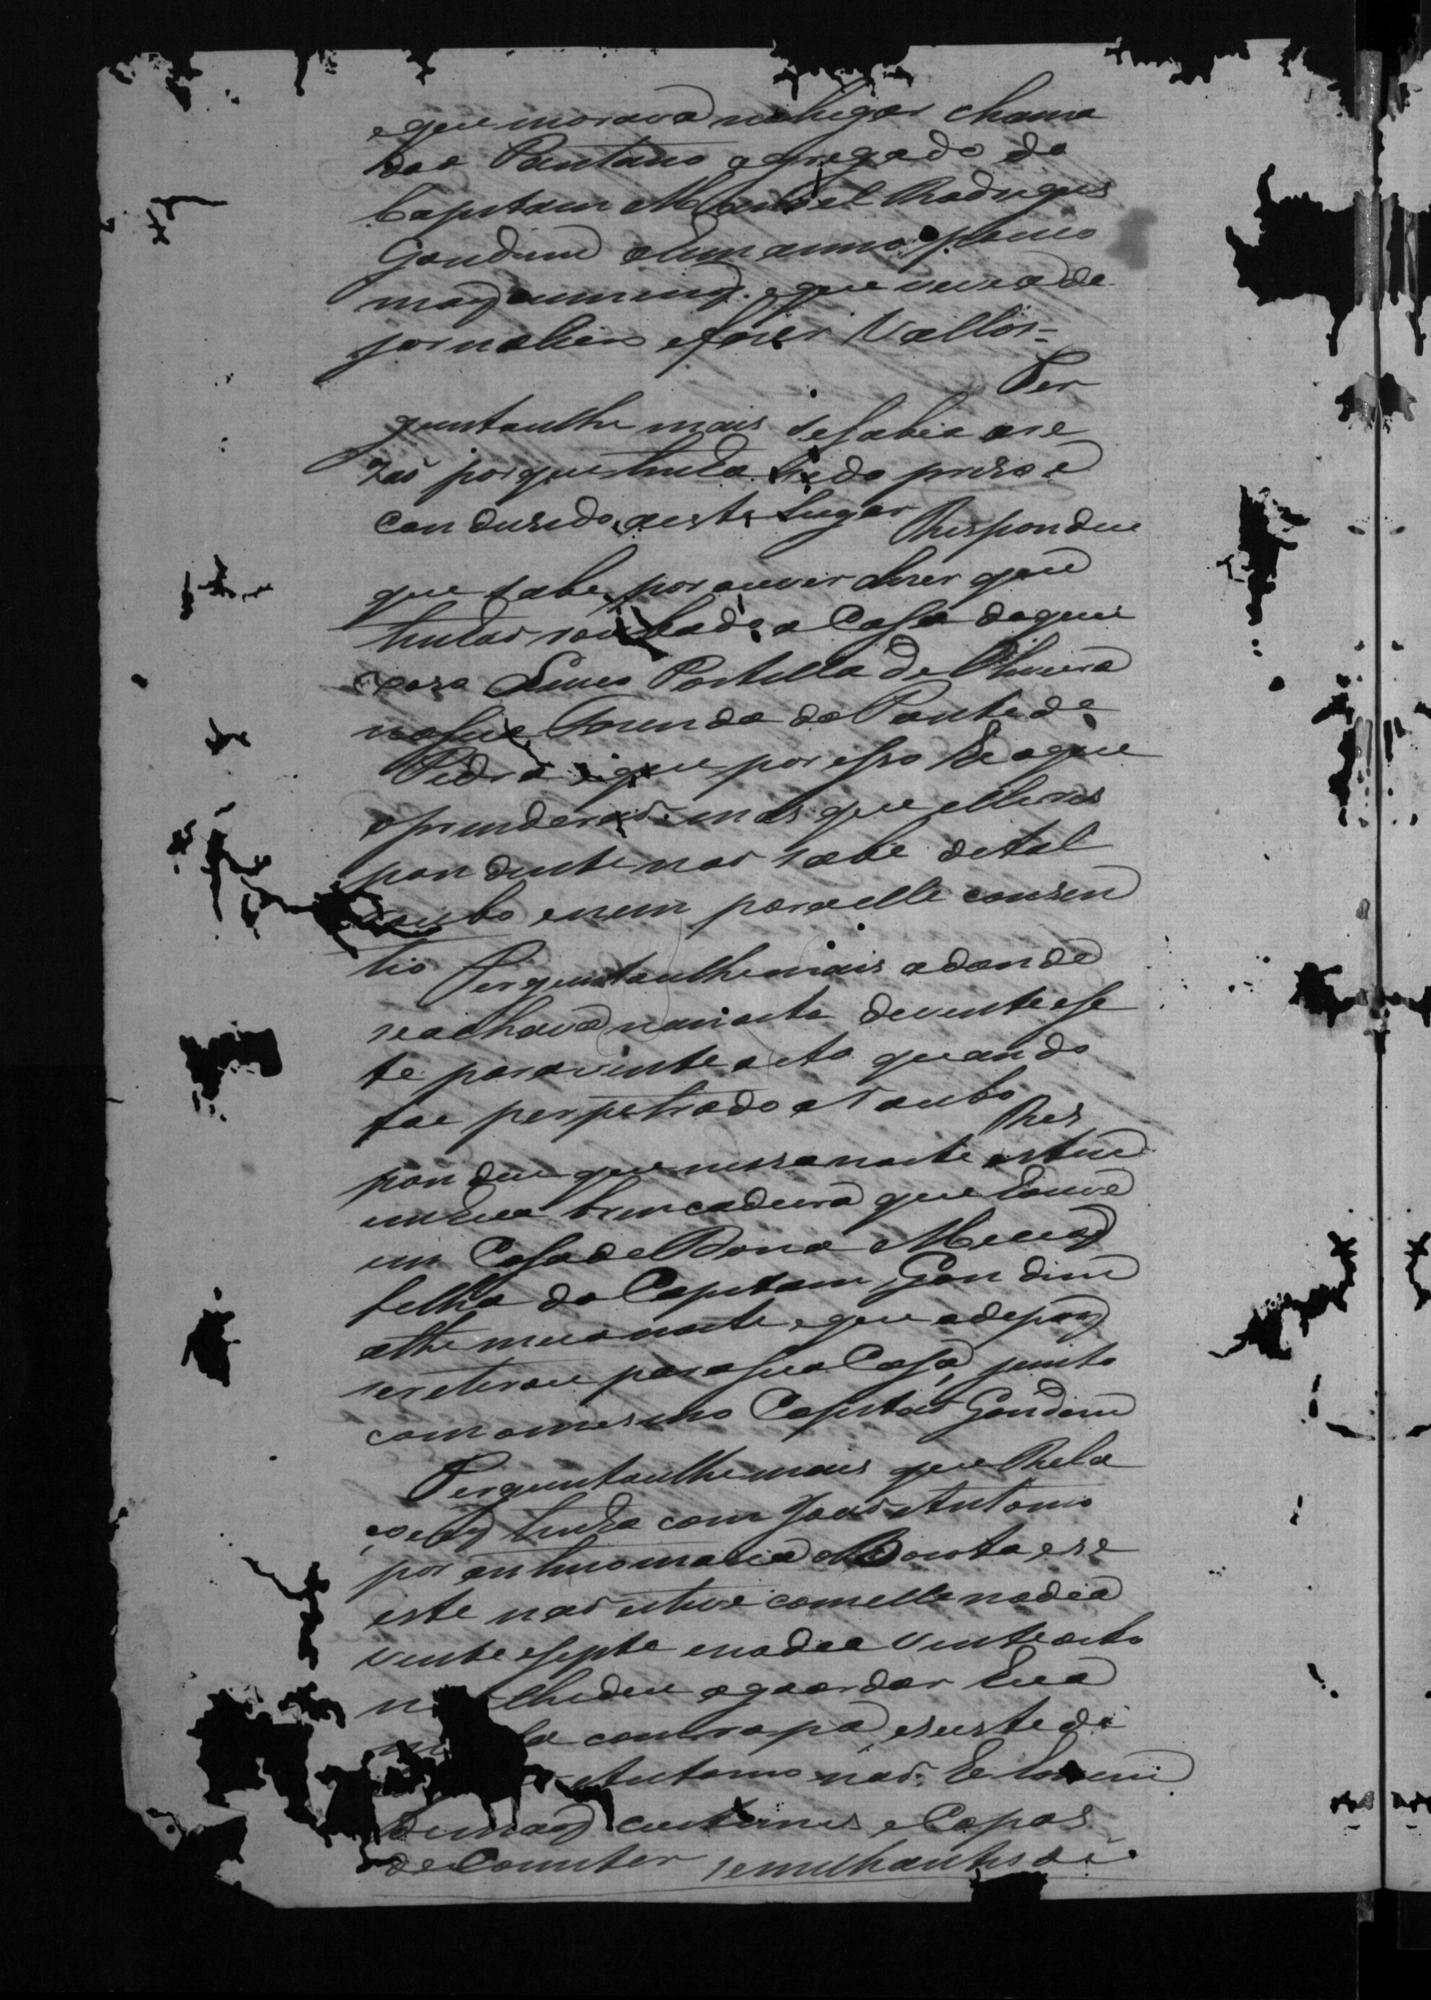 e que morava no lugar chama
do o Pantano agregado do
Capitam Manoel Rodrigues
Gondim a um anno pouco
mais ou menos e que vive de
jornaleiro e fazer Vallos =
Per
guntoulhe mais se sabia a re
zão porque tinha sido prezo e
condusido a este lugar Respondeu
que sabe por ouvir dizer que
tinhão roubado a Casa de que
Portella de Oliveira
na sua Fazenda da Ponte de
Pedra e que por isso he o que
o prenderão mas que elle res
pondente não sabe de tal
roubo e nem para elle consen
tio Perguntoulhe mais adonde
se achava na noite de vinte e se
te para vinte oito quando
foe perpetrado o Roubo Res
pondeu que nessa noite esteve
em hua brincadeira que houve
em Casa de Dona
filha do Capitam Gondim
athe meia noite e que ao depois
se retirou para sua Casa junto
com o mesmo Capitão Gondim
Perguntoulhe mais que Rela
ções tinha com João Antonio
por anthonomazia e se
este não esteve com elle no dia
vinte e septe e no dia vinte oito
lhe deu a guardar hua
com roupa, e se este di
Antonio não
de mais e Capas
de semilhantes